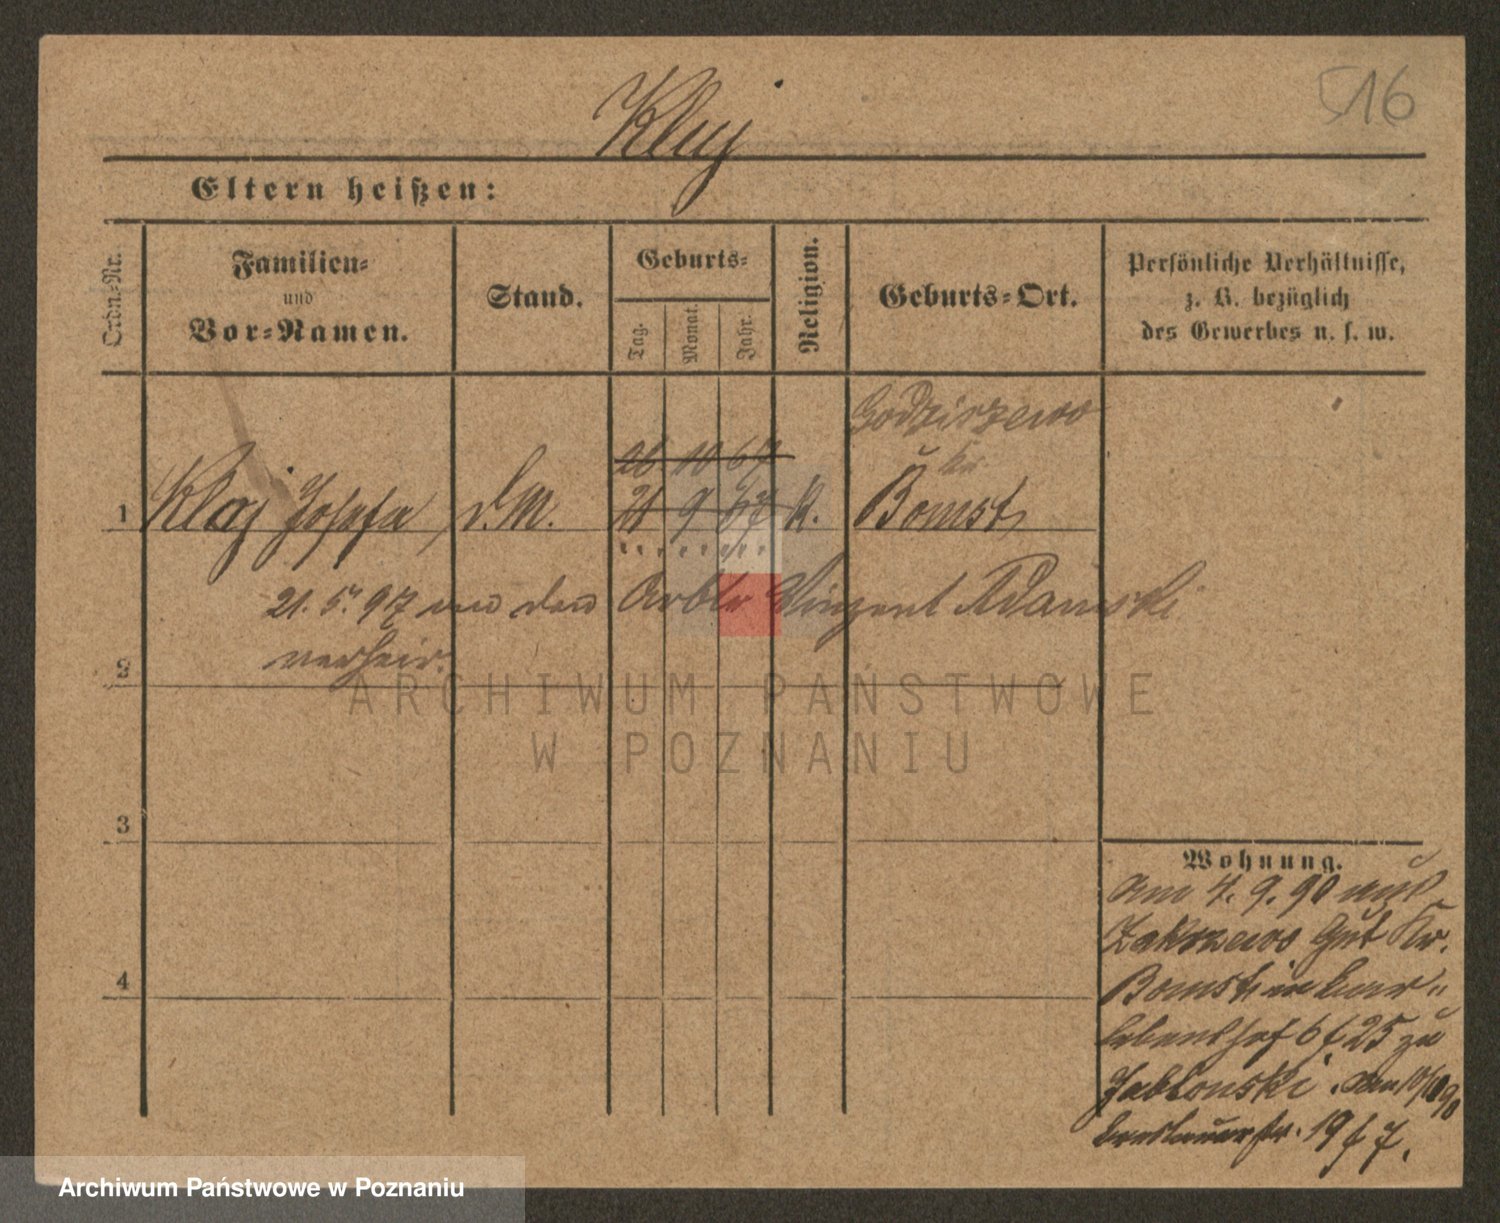 516
Kluj
Eltern heißen:
Ordn.-Nr.
Familien-
und
Vor-Namen.
Stand.
Geburts-
Tag.
Monat.
Jahr.
Religion.
Geburts-Ort.
Persönliche Verhältnisse,
z. B. bezüglich
des Gewerbes u. s. w.
Godziszewo
26 10 67
1 Kluj Josefa d. M. 21 9 67 K. Bomst
21. 5. 97 mit dem Arbtr Vinzent Adamski
verheir.
2
3
4
ARCHIWUM PAŃSTWOWE
W POZNANIU
Wohnung.
Am 4. 9. 90 aus
Zakrzewo Gut Kr.
Bomst
6 f 25 zu
Jablonski. am 10/10 90
Breslauerstr. 19 f 7.
Archiwum Państwowe w Poznaniu